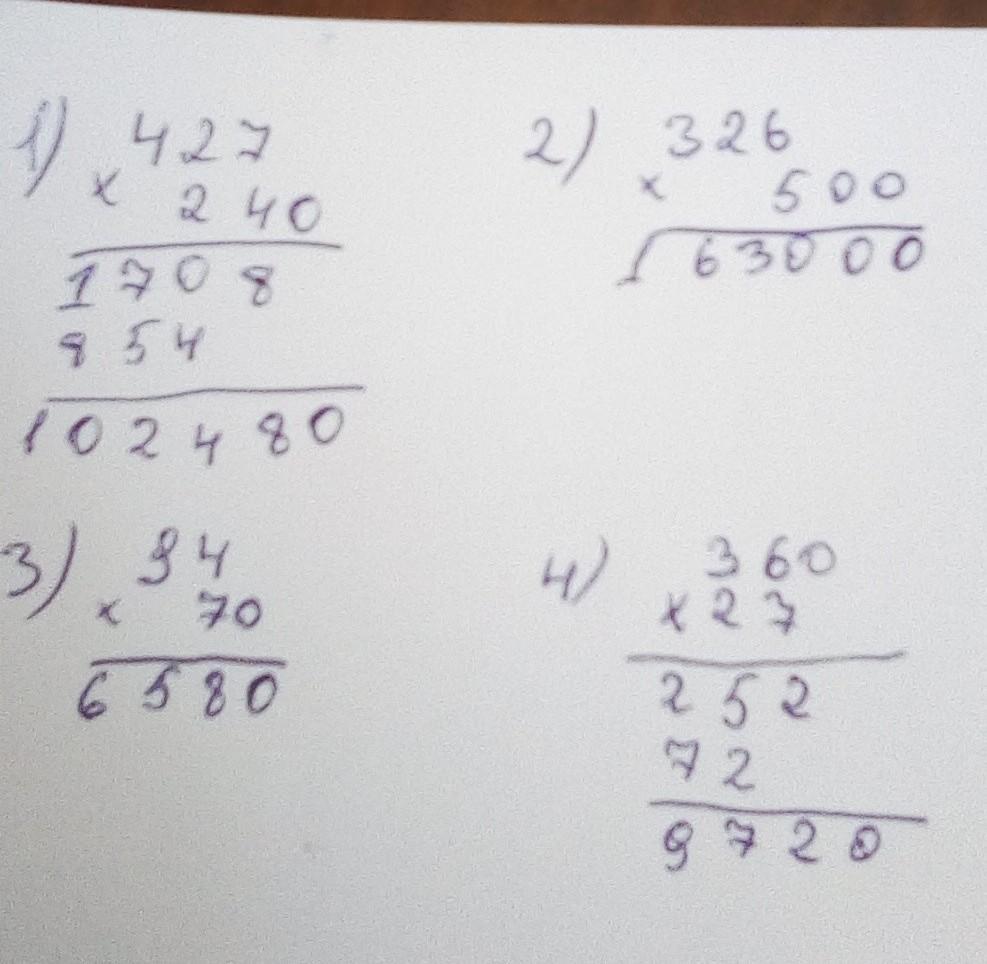 1) 427
x 240
1708
854
102480
2) 326
x 500
163000
3) 94
x 70
6580
4) 360
x 27
252
72
9720